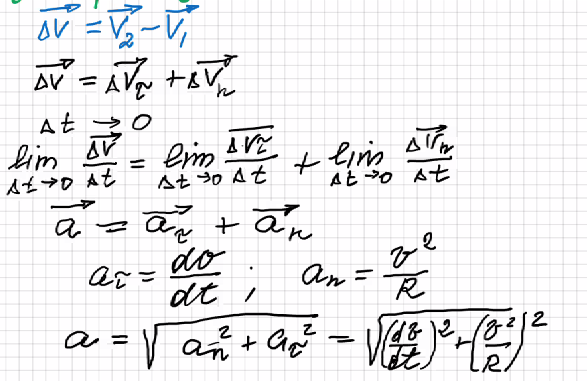 ΔV⃗ = V⃗₂ − V⃗₁
ΔV⃗ = ΔV⃗τ + ΔV⃗n
Δt → 0
lim Δt→0 ΔV⃗/Δt = lim Δt→0 ΔV⃗τ/Δt + lim Δt→0 ΔV⃗n/Δt
a⃗ = a⃗τ + a⃗n
aτ = dv/dt ; an = v²/R
a = √(an² + aτ²) = √((dv/dt)² + (v²/R)²)